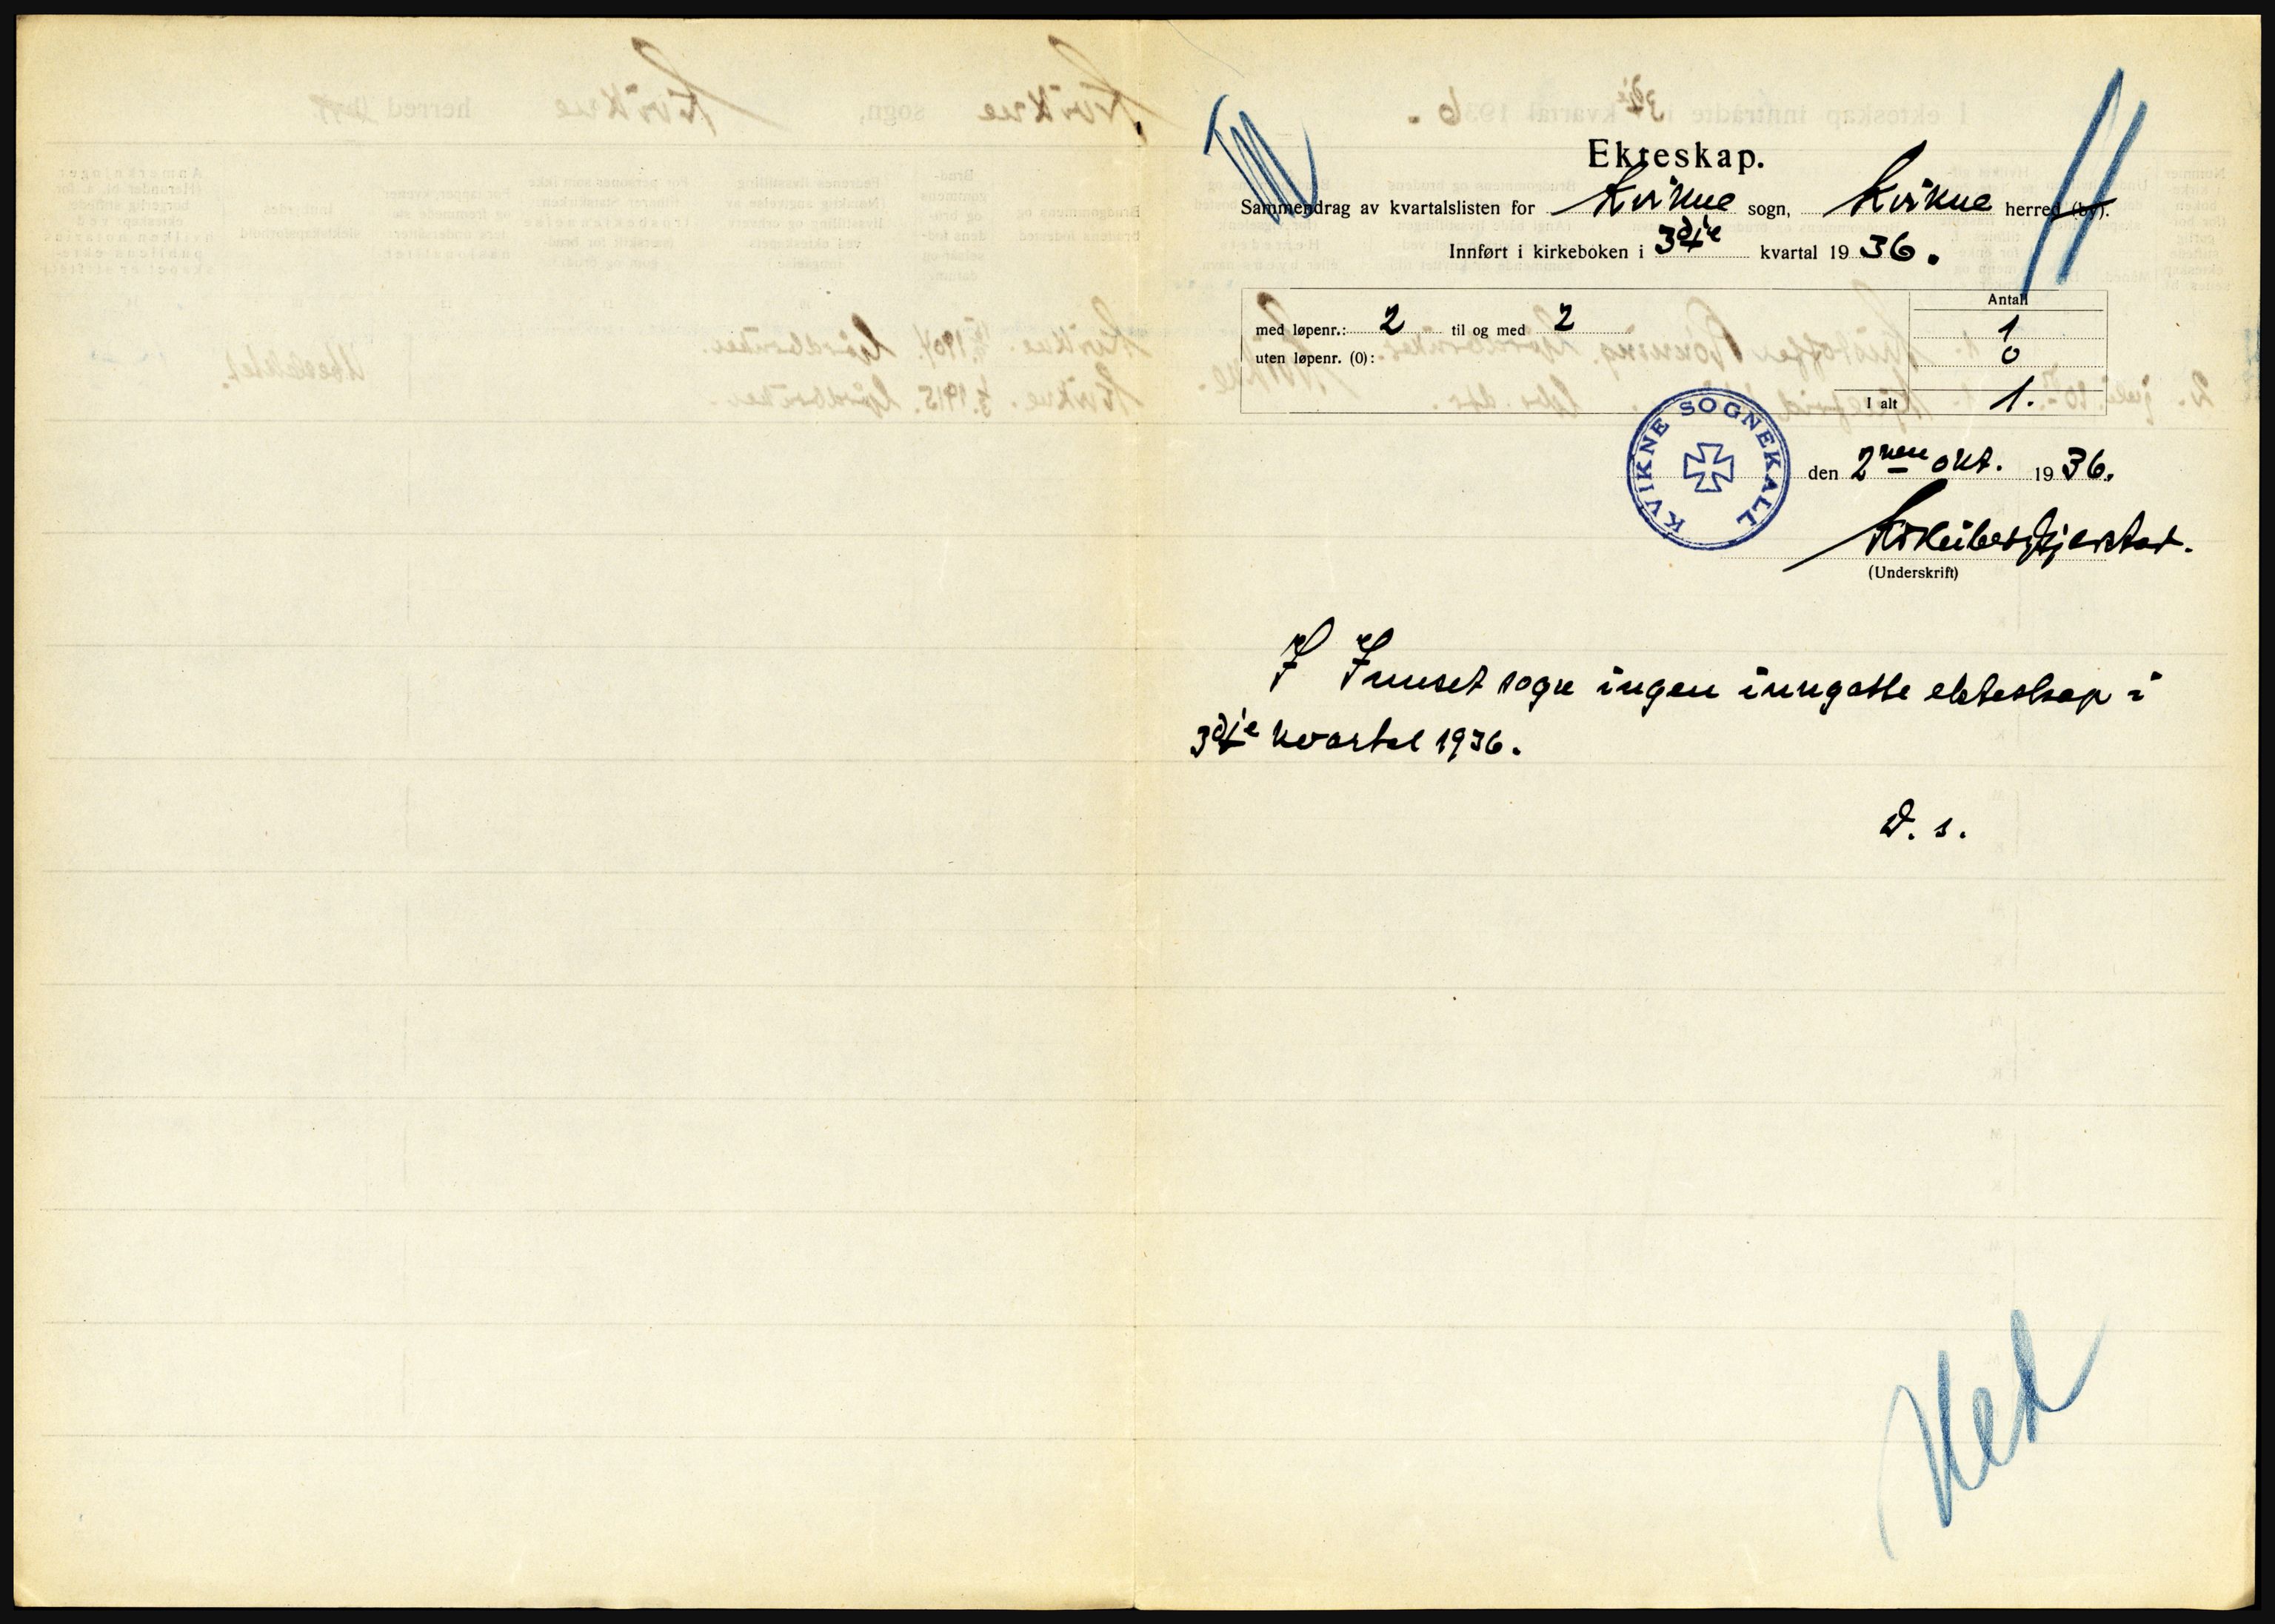 Ekteskap.
Sammendrag av kvartalslisten for Kvikne sogn, Kvikne herred (by).
Innført i kirkeboken i 3dje kvartal 1936.
Antall
med løpenr.: 2 til og med 2 1
uten løpenr. (0): 0
I alt 1.
KVIKNE SOGNEKALL
den 2nen okt. 1936.
(Underskrift)
I Innset sogn ingen inngåtte ekteskap i
3dje kvartal 1936.
D. s.
Hed